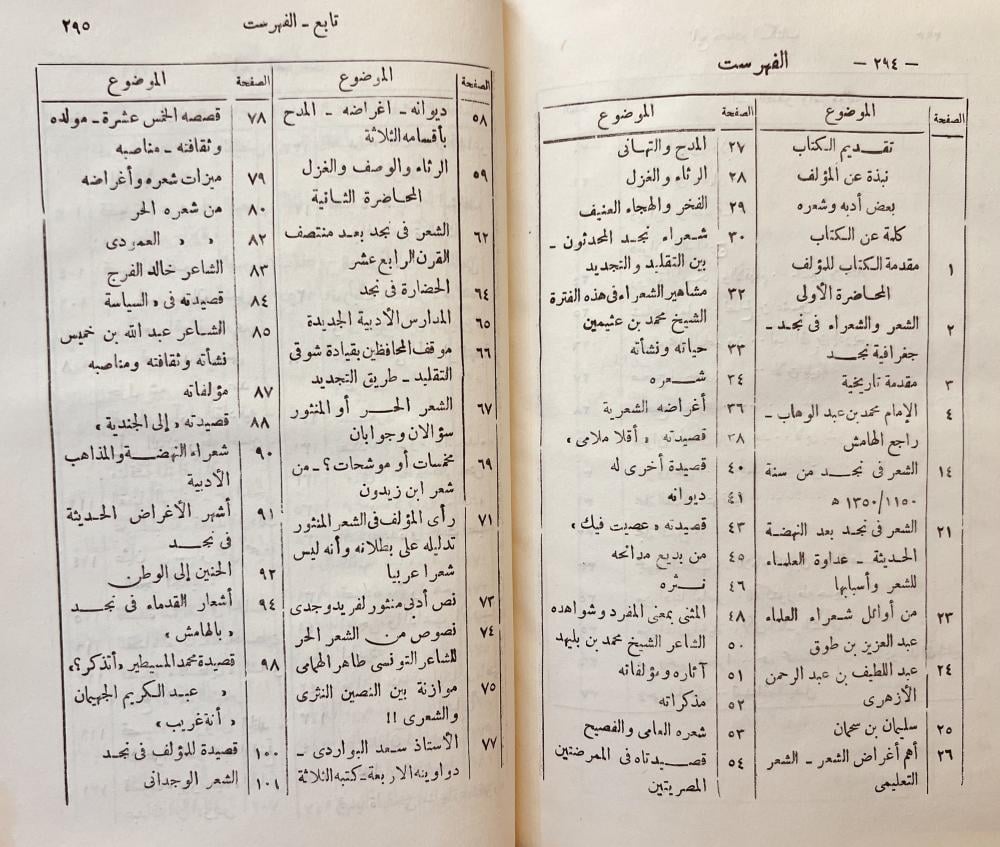 — ٢٩٤ —
الفهرست
الصفحة
الموضوع
تقديم الكتاب
نبذة عن المؤلف
بعض أدبه وشعره
كلمة عن الكتاب
١ مقدمة الكتاب للمؤلف
المحاضرة الأولى
٢ الشعر والشعراء فى نجد –
جغرافية نجد
٣ مقدمة تاريخية
٤ الإمام محمد بن عبد الوهاب –
راجع الهامش
١٤ الشعر فى نجد من سنة
١١٥٠/١٣٥٠ ه
٢١ الشعر فى نجد بعد النهضة
الحديثة – عداوة العلماء
للشعر وأسبابها
٢٣ من أوائل شعراء العلماء
عبد العزيز بن طوق
٢٤ عبد اللطيف بن عبد الرحمن
الأزهرى
٢٥ سليمان بن سحمان
٢٦ أهم أغراض الشعر – الشعر
التعليمى
الصفحة
الموضوع
٢٧ المدح والتهانى
٢٨ الرثاء والغزل
٢٩ الفخر والهجاء العنيف
٣٠ شعراء نجد المحدثون –
بين التقليد والتجديد
٣٢ مشاهير الشعراء فى هذه الفترة
الشيخ محمد بن عثيمين
٣٣ حياته ونشأته
٣٤ شعره
٣٦ أغراضه الشعرية
٣٨ قصيدته « أقلا ملامى »
٤٠ قصيدة أخرى له
٤١ ديوانه
٤٣ قصيدته « عصيت فيك »
٤٥ من بديع مدائحه
٤٦ نثره
٤٨ المثنى بمعنى المفرد وشواهده
٥٠ الشاعر الشيخ محمد بن بليهد
٥١ آثاره ومؤلفاته
٥٢ مذكراته
٥٣ شعره العامى والفصيح
٥٤ قصيدتاه فى الممرضتين
المصريتين
تابع – الفهرست
٢٩٥
الصفحة
الموضوع
٥٨ ديوانه – اغراضه – المدح
بأقسامه الثلاثة
٥٩ الرثاء والوصف والغزل
المحاضرة الثانية
٦٢ الشعر فى نجد بعد منتصف
القرن الرابع عشر
٦٤ الحضارة فى نجد
٦٥ المدارس الأدبية الجديدة
٦٦ موقف المحافظين بقيادة شوقى
التقليد – طريق التجديد
٦٧ الشعر الحر أو المنثور
سؤالان وجوابان
٦٩ مخمسات أو موشحات؟ – من
شعر ابن زيدون
٧١ رأى المؤلف فى الشعر المنثور
تدليله على بطلانه وأنه ليس
شعرا عربيا
٧٣ نص أدبى منثور لفريد وجدى
٧٤ نصوص من الشعر الحر
للشاعر التونسى طاهر الهمامى
٧٥ موازنة بين النصين النثرى
والشعرى !!
٧٧ الأستاذ سعد البواردى –
دواوينه الاربعة – كتبه الثلاثة
الصفحة
الموضوع
٧٨ قصصه الخمس عشرة – مولده
وثقافته – مناصبه
٧٩ ميزات شعره وأغراضه
٨٠ من شعره الحر
٨٢ « « العمودى
٨٣ الشاعر خالد الفرج
٨٤ قصيدته فى « السياسة
٨٥ الشاعر عبد الله بن خميس
نشأته وثقافته ومناصبه
٨٧ مؤلفاته
٨٨ قصيدته « إلى الجندية »
٩٠ شعراء النهضة والمذاهب
الأدبية
٩١ أشهر الأغراض الحديثة
فى نجد
٩٢ الحنين إلى الوطن
٩٤ أشعار القدماء فى نجد
« بالهامش »
٩٨ قصيدة محمد المسيطير « أتذكر؟ »
« عبد الكريم الجهيمان
« أنة غريب »
١٠٠ قصيدة للمؤلف فى نجد
١٠١ الشعر الوجدانى